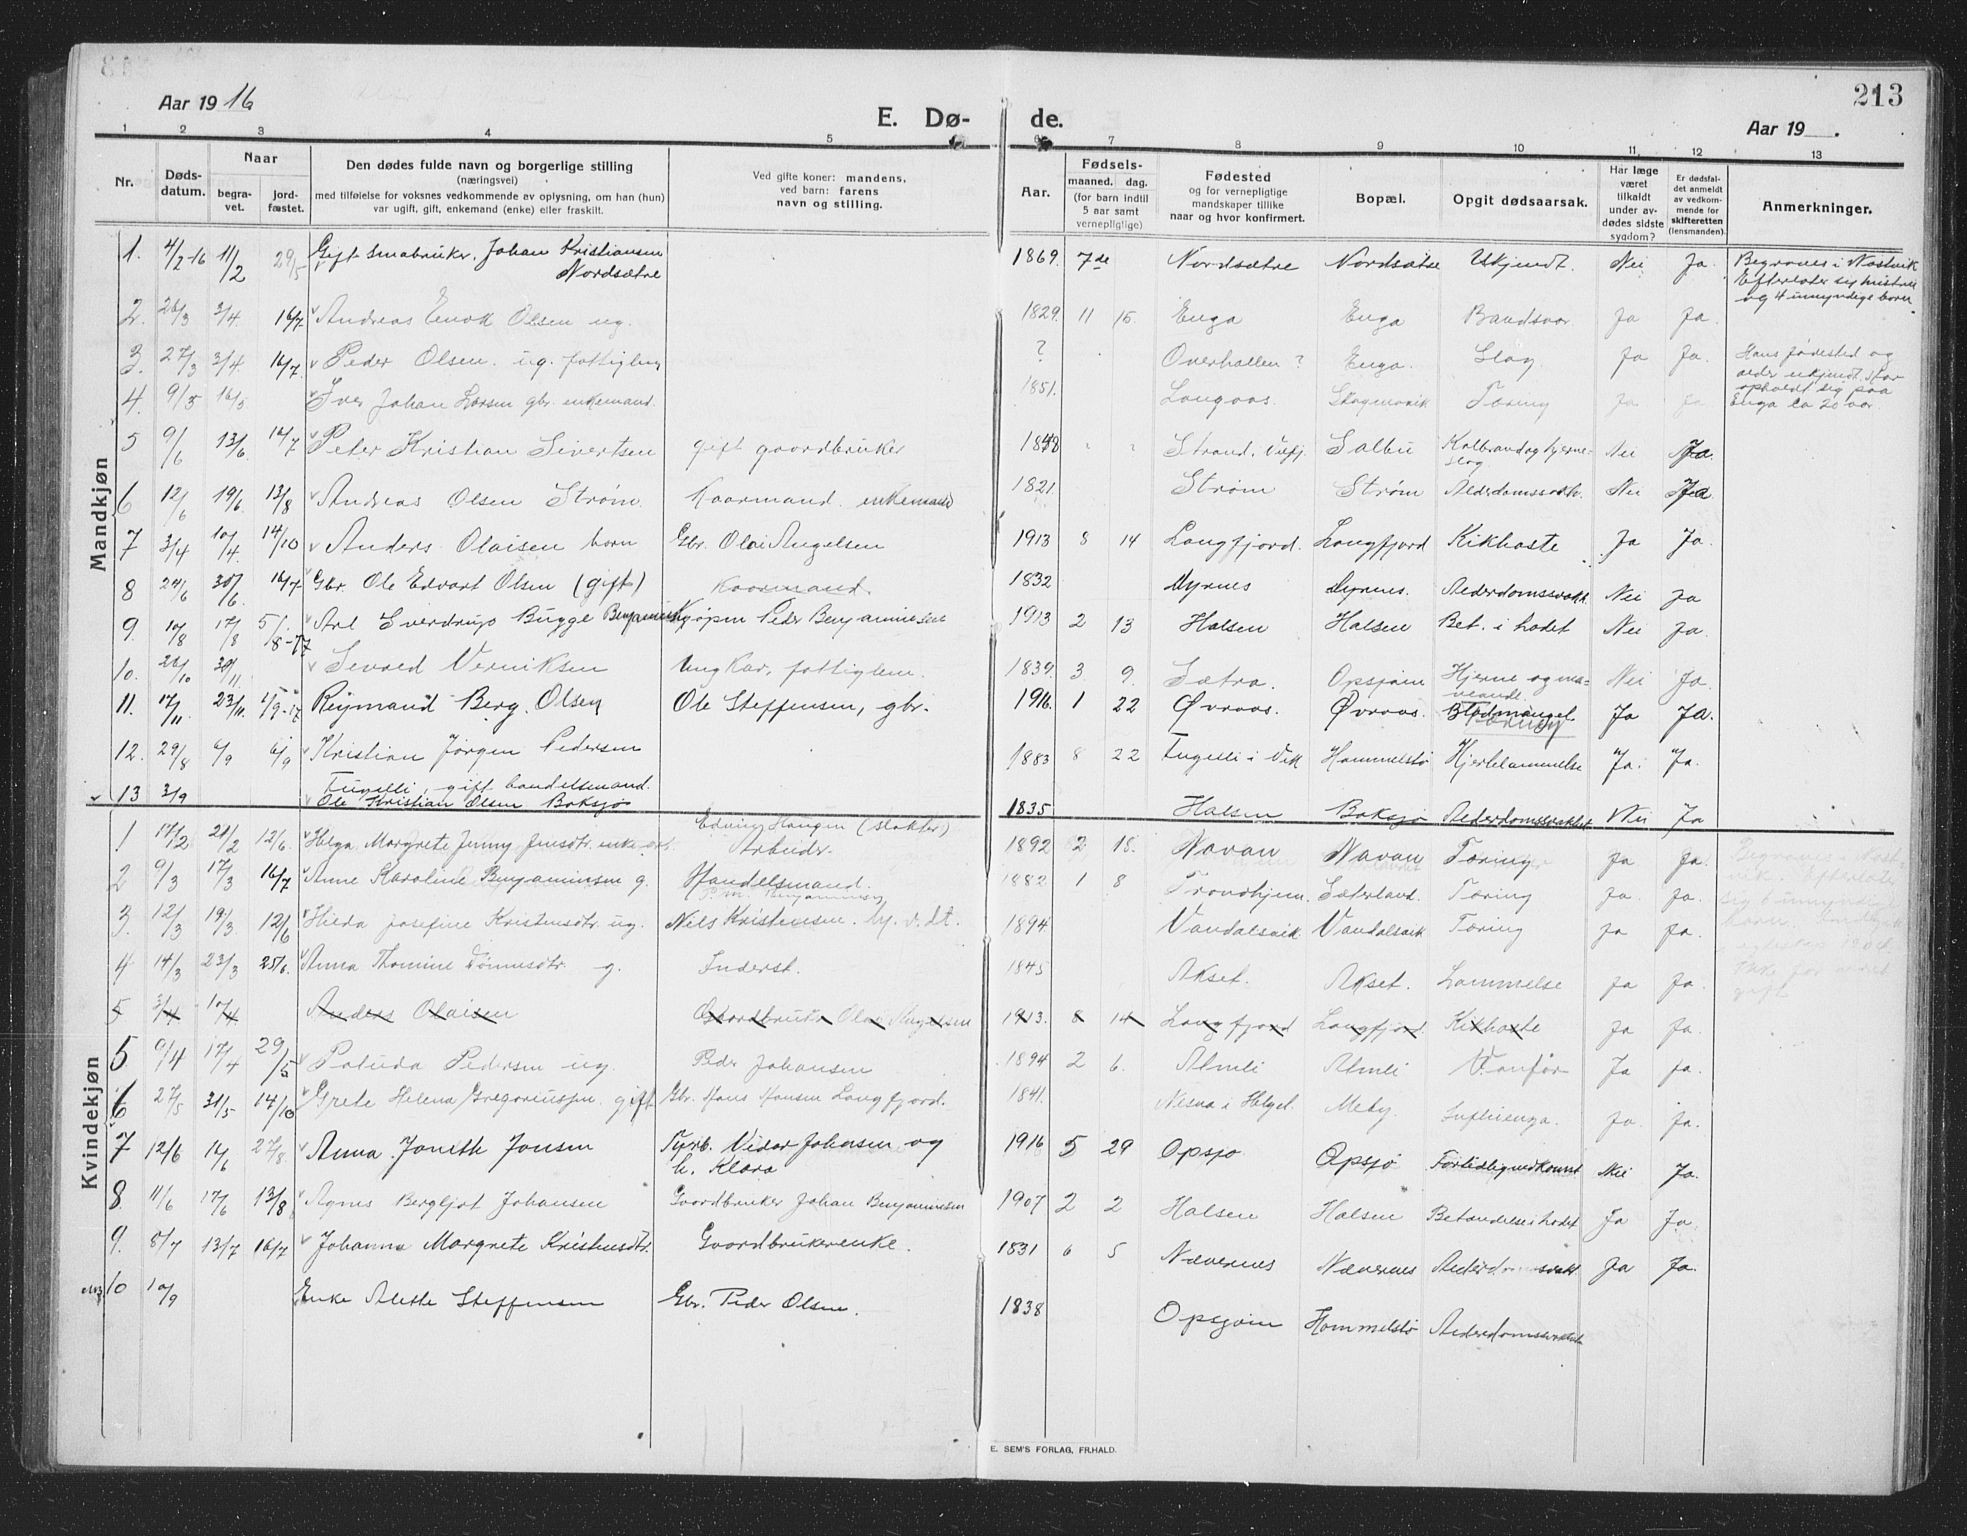 213
Aar 19 16
E. Dø-
de.
Aar 19
1 2 3 4 5 6 7 8 9 10 11 12 13
Nr.
Døds-
datum.
Naar
begra-
vet.
jord-
fæstet.
Den dødes fulde navn og borgerlige stilling
(næringsvei)
med tilføielse for voksnes vedkommende av oplysning, om han (hun)
var ugift, gift, enkemand (enke) eller fraskilt.
Ved gifte koner: mandens,
ved barn: farens
navn og stilling.
Aar.
Fødsels-
maaned. dag.
(for barn indtil
5 aar samt
vernepligtige)
Fødested
og for vernepligtige
mandskaper tillike
naar og hvor konfirmert.
Bopæl.
Opgit dødsaarsak.
Har læge
været
tilkaldt
under av-
dødes sidste
sygdom?
Er dødsfal-
det anmeldt
av vedkom-
mende for
skifteretten
(lensmanden).
Anmerkninger.
Mandkjøn
1. 4/2-16 11/2 29/5 Gift smabruker, Johan Kristiansen
Nordsætre
1869. 7de Nordsætre Nordsætre Ukjendt. Nei Ja.
Begraves i
Efterlater sig hustru
og 4 umyndige barn
2. 26/3 3/4 16/7 Andreas Enok Olsen ug. 1829. 11 15. Enga Enga Ja Ja.
3. 27/3 3/4 16/7 Peder Olsen. ug. fattiglem ? Overhallen? Enga. Slag. Ja Ja.
Hans fødested og
alder ukjendt, har
opholdt sig paa
Enga ca 20 aar.
4. 9/5 16/5 Iver Johan Larsen gbr. enkemand. 1851. Langaas. Tæring Ja Ja
5 9/6 13/6. 14/7 Peter Kristian Sivertsen gift gaardbruker 1848 " " Strand, Salbu Koldbrand og hjerne-
slag Nei Ja.
6 12/6 19/6. 13/8 Andreas Olsen Strøm. Kaarmand. enkemand 1821. Strøm Strøm Alderdomssvakh. Nei Ja
7 3/4 10/4. 14/10 Anders Olaisen barn Gbr. Olai Angelsen 1913 8 14 Langfjord. Langfjord Kikhoste Ja Ja.
8 24/6 30/6. 16/7 Gbr. Ole Edvart Olsen (gift) Kaarmand. 1832 Myrnes Myrnes. Alderdomssvakh. Nei Ja
9. 10/8 17/8 5/8-17 Arl Sverdrup Bugge Benjaminsen Kjøpm Peder Benjaminsen 1913 2 13 Halsen Halsen Bet. i hodet Nei Ja.
10. 26/10 30/11 Sevald Verniksen Ungkar, fattiglem. 1839. 3. 9. Sætra. Opsjøin Hjerne og ma-
veonde Nei Ja.
11. 17/11 23/11. 1/9-17 Reymand Berg. Olsen Ole Steffensen, gbr. 1916. 1 22 Øvraas. Øvraas. Blodmangel Ja Ja.
12. 29/8 6/9 6/9 Kristian Jørgen Pedersen
Fugelli, gift handelsmand. 1883 8 22 Fugelli i Vik Hommelstø Hjertelammelse Ja. Ja.
13 3/9 Ole Kristian Olsen Baksjø 1835 Halsen Baksjø Alderdomssvakhet Nei Ja
Kvindekjøn
1 17/2 21/2 12/6. Helga Margrete Jenny Jensdtr. enke Edvin Haugen (slakter)
Arbeider. 1892 2 18. Navan Navan Tæring Ja Ja.
2 9/3 17/3 16/7 Anne Karoline Benjaminsen g. Handelsmand. 1882 1 8 Trondhjem. Sæterland. Tæring Ja. Ja.
3. 12/3 19/3. 12/6 Hilda Josefine Kristensdtr. ug. Nels Kristensen. 1894 Vandalsvik Vandalsvik Tæring Ja Ja.
4 14/3 23/3 25/6. Anna Thomine Tønnesdtr. g. Inderst. 1845 Akset. Akset. Lammelse Ja Ja.
5 3/4 10/4 Anders Olaisen Gaardbruker Olai Angelsen 1913. 8 14 Langfjord Langfjord Kikhoste Ja Ja.
5. 9/4 17/4 29/5 Paluda Pedersen ug. Peder Johansen 1894 2 6. Almli Almli Vanfør Ja Ja.
6 27/5 31/5 14/10 Grete Helena Gregoriussen. gift Gbr. Hans Hansen Langfjord. 1841. Nesna i Helgel. Meby. Influenga. Ja. Ja.
7 12/6 16/6 27/8. Anna Janeth Jonsen Vidar Johansen og
h. Klara 1916 5 29 Opsjø Opsjø Fortidlig nedkomst Nei Ja.
8. 11/6 17/6 13/8 Agnes Bergljot Johansen Gaardbruker Johan Benjaminsen 1907 2 2 Halsen Halsen Betændelse i hodet Ja Ja.
9. 8/7 13/7 16/7 Johanna Margrete Kristensdtr. Gaardbrukerenke. 1831 6 5 Nævernes Nævernes Alderdomssvakh. Ja Ja.
10 10/9 Enke Alette Steffensen Gbr. Peder Olsen. 1838 Opsjøin Hommelstø Alderdomssvakhet
E. SEM'S FORLAG, FR.HALD.